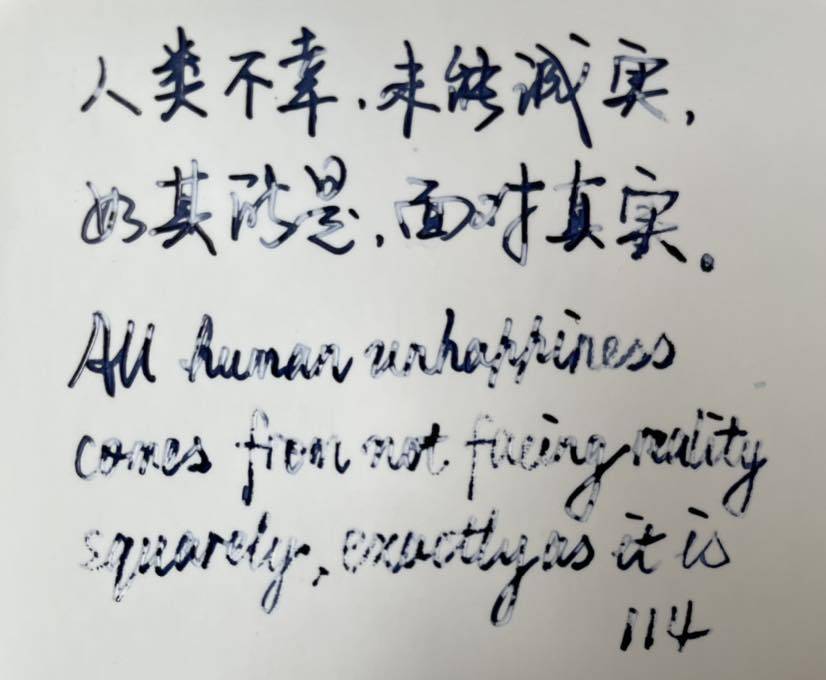 人类不幸,未能诚实,
如其所是,面对真实。
All human unhappiness
comes from not facing reality
squarely, exactly as it is
114